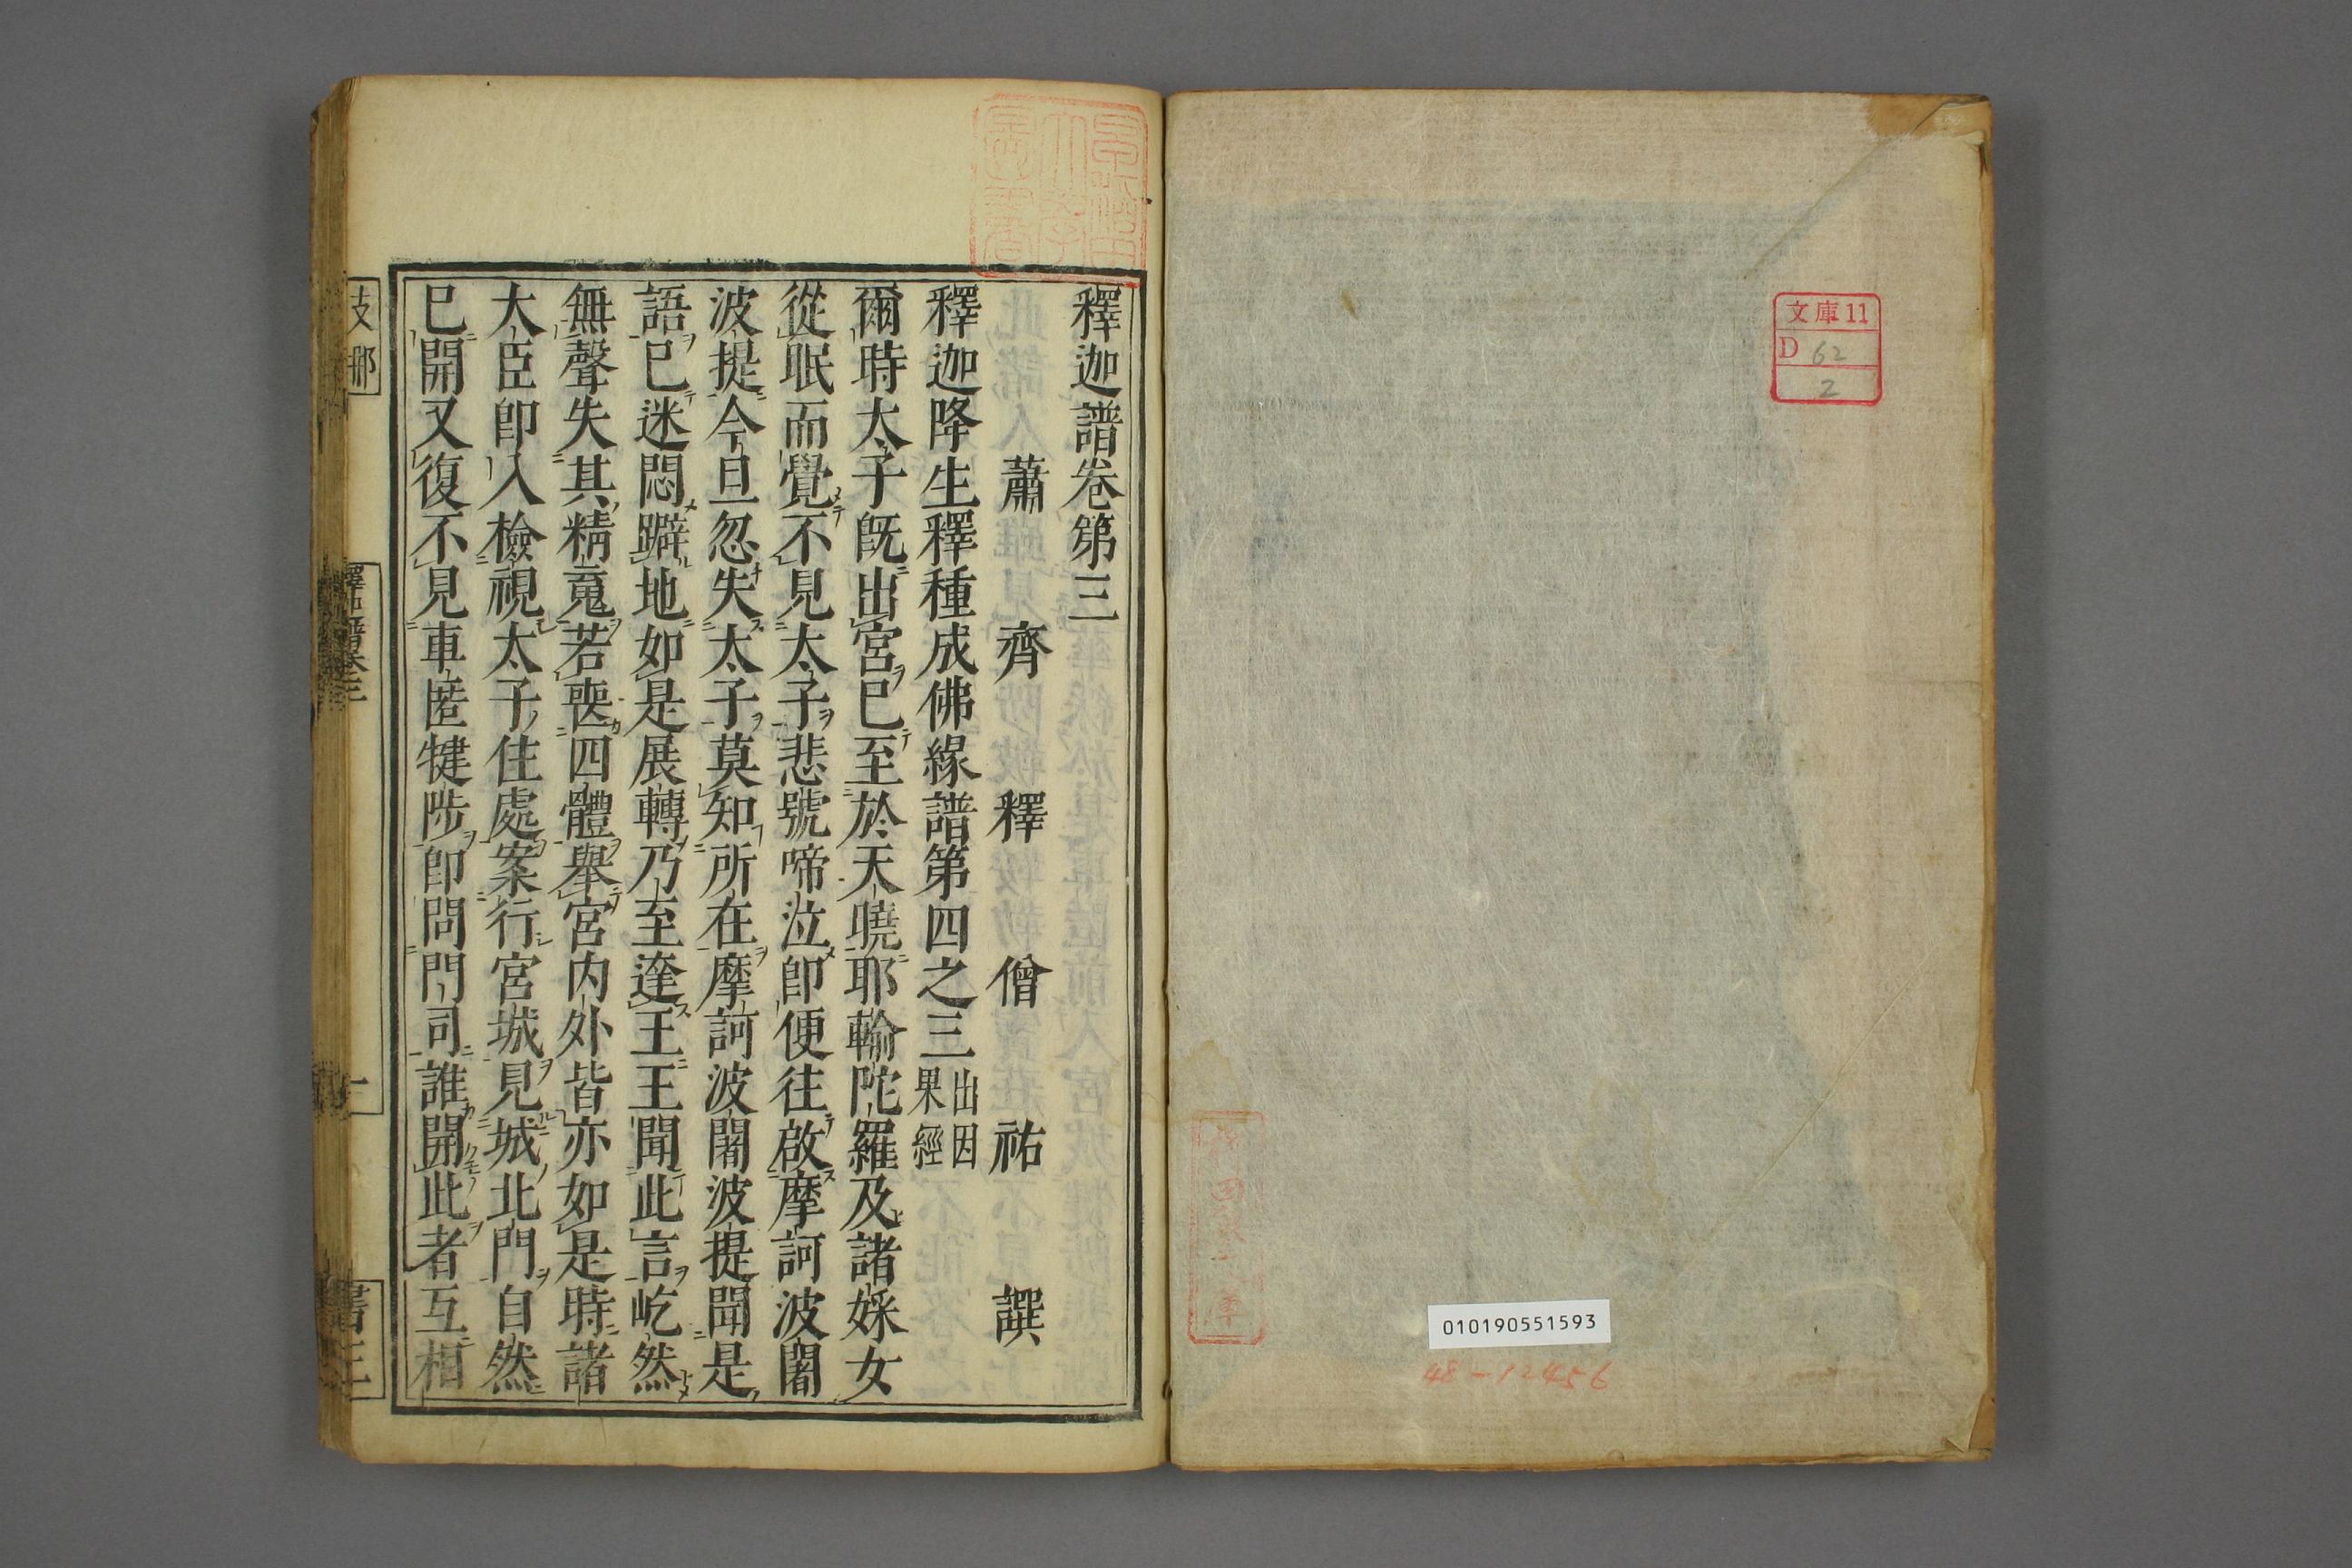 文庫11
D 62
2
010190551593
48-12456
釋迦譜卷第三
蕭齊釋僧祐譔
釋迦降生釋種成佛緣譜第四之三 出因果經
爾時太子旣出宮已至於天曉耶輸陀羅及諸婇女
從眠而覺不見太子悲號啼泣卽便往啟摩訶波闍
波提今旦忽失太子莫知所在摩訶波闍波提聞是
語已迷悶躃地如是展轉乃至達王王聞此言屹然
無聲失其精䰟若喪四體舉宮內外皆亦如是時諸
大臣卽入檢視太子住處案行宮城見城北門自然
已開又復不見車匿犍陟卽問門司誰開此者互相
支那
釋迦譜卷三
一
書三